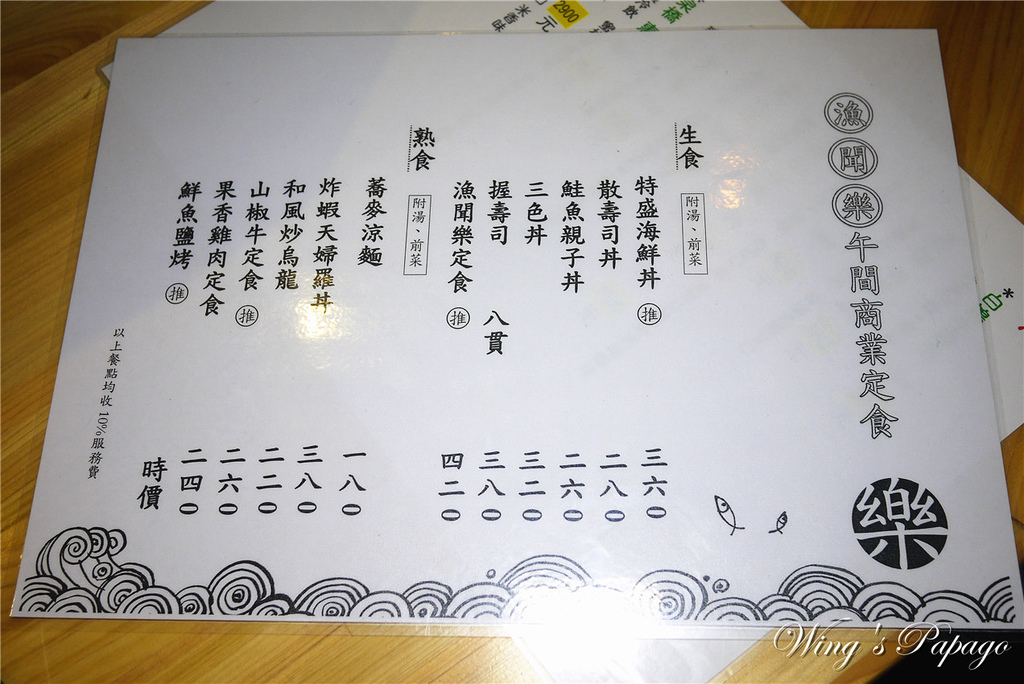 漁聞樂午間商業定食
樂
生食 附湯、前菜
特盛海鮮丼 推 三六〇
散壽司丼 二八〇
鮭魚親子丼 二六〇
三色丼 三二〇
握壽司 八貫 三八〇
漁聞樂定食 推 四二〇
熟食 附湯、前菜
蕎麥涼麵 一八〇
炸蝦天婦羅丼 三八〇
和風炒烏龍 二二〇
山椒牛定食 推 二六〇
果香雞肉定食 二四〇
鮮魚鹽烤 推 時價
以上餐點均收10%服務費
2900
元
米香味
Wing's Papago